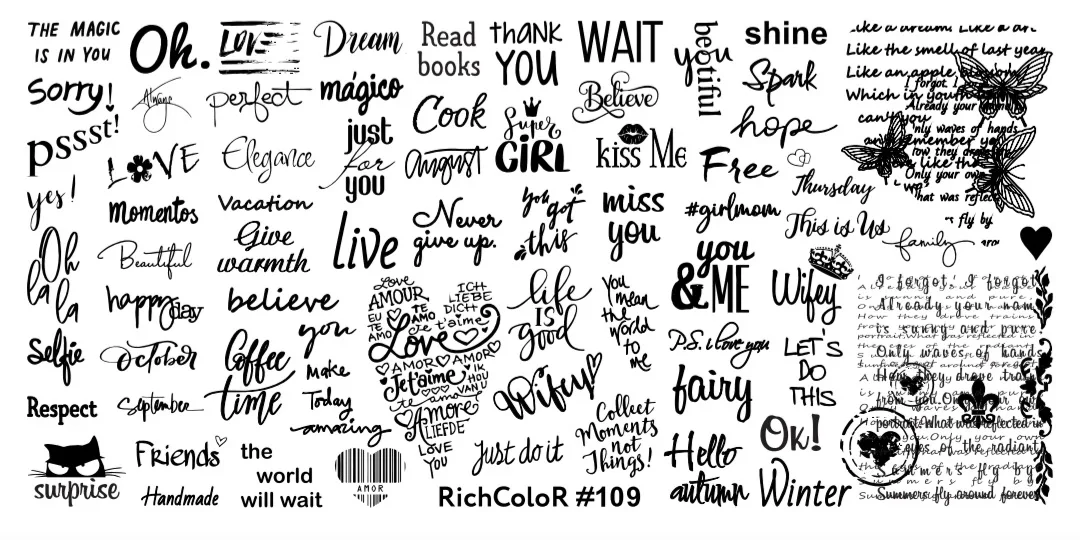 THE MAGIC
IS IN YOU
Oh.
LOVE
Dream
Read
books
thANK
YOU
WAIT
you
beotiful
shine
Sorry!
Always
perfect
mágico
Cook
Super
GiRL
Believe
Spark
hope
pssst!
LOVE
Elegance
just
for
you
august
kiss Me
Free
Thursday
yes!
Momentos
Vacation
Give
warmth
live
Never
give up.
you got
this
miss
you
#girlmom
This is Us
family
Oh
la
la
Beautiful
happy
day
believe
you
Love
AMOUR
EU
TE
AMO
ICH
LIEBE
DICH
TE
AMO
Je t'aime
Love
AMOR
AMOR
Je t'aime
IK
HOU
VAN U
te amo
Amore
LIEFDE
LOVE
YOU
life
IS
good
You
mean
the
world
to
me
you
&ME
Wifey
Selfie
October
Coffee
time
Make
Today
amazing
Wifey
P.S. i love you
fairy
LET'S
DO
THIS
Respect
September
surprise
Friends
Handmade
the
world
will wait
AMOR
Just do it
Collect
Moments
not
Things!
Hello
autumn
OK!
Winter
RichColoR #109
Like a dream Like a
Like the smell of last year
Like an apple blossom
I forgot
Which in youth
Already your
can you
only waves of hands
and remember you
how they drove
like the
Only your own
what was reflected
fly by
I forgot, I forgot
Already your name
is sunny and pure
Only waves of hands
How they drove trains
from you. Only your own
portrait. What was reflected in
eyes of the radiant
Summers fly by
Summers fly around forever